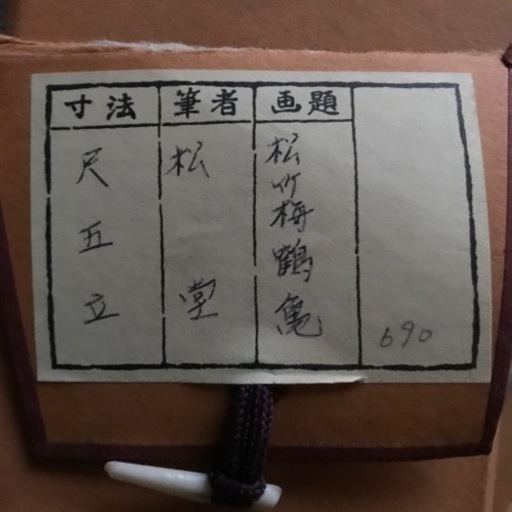 画題
松竹梅鶴亀
筆者
松堂
寸法
尺五立
690